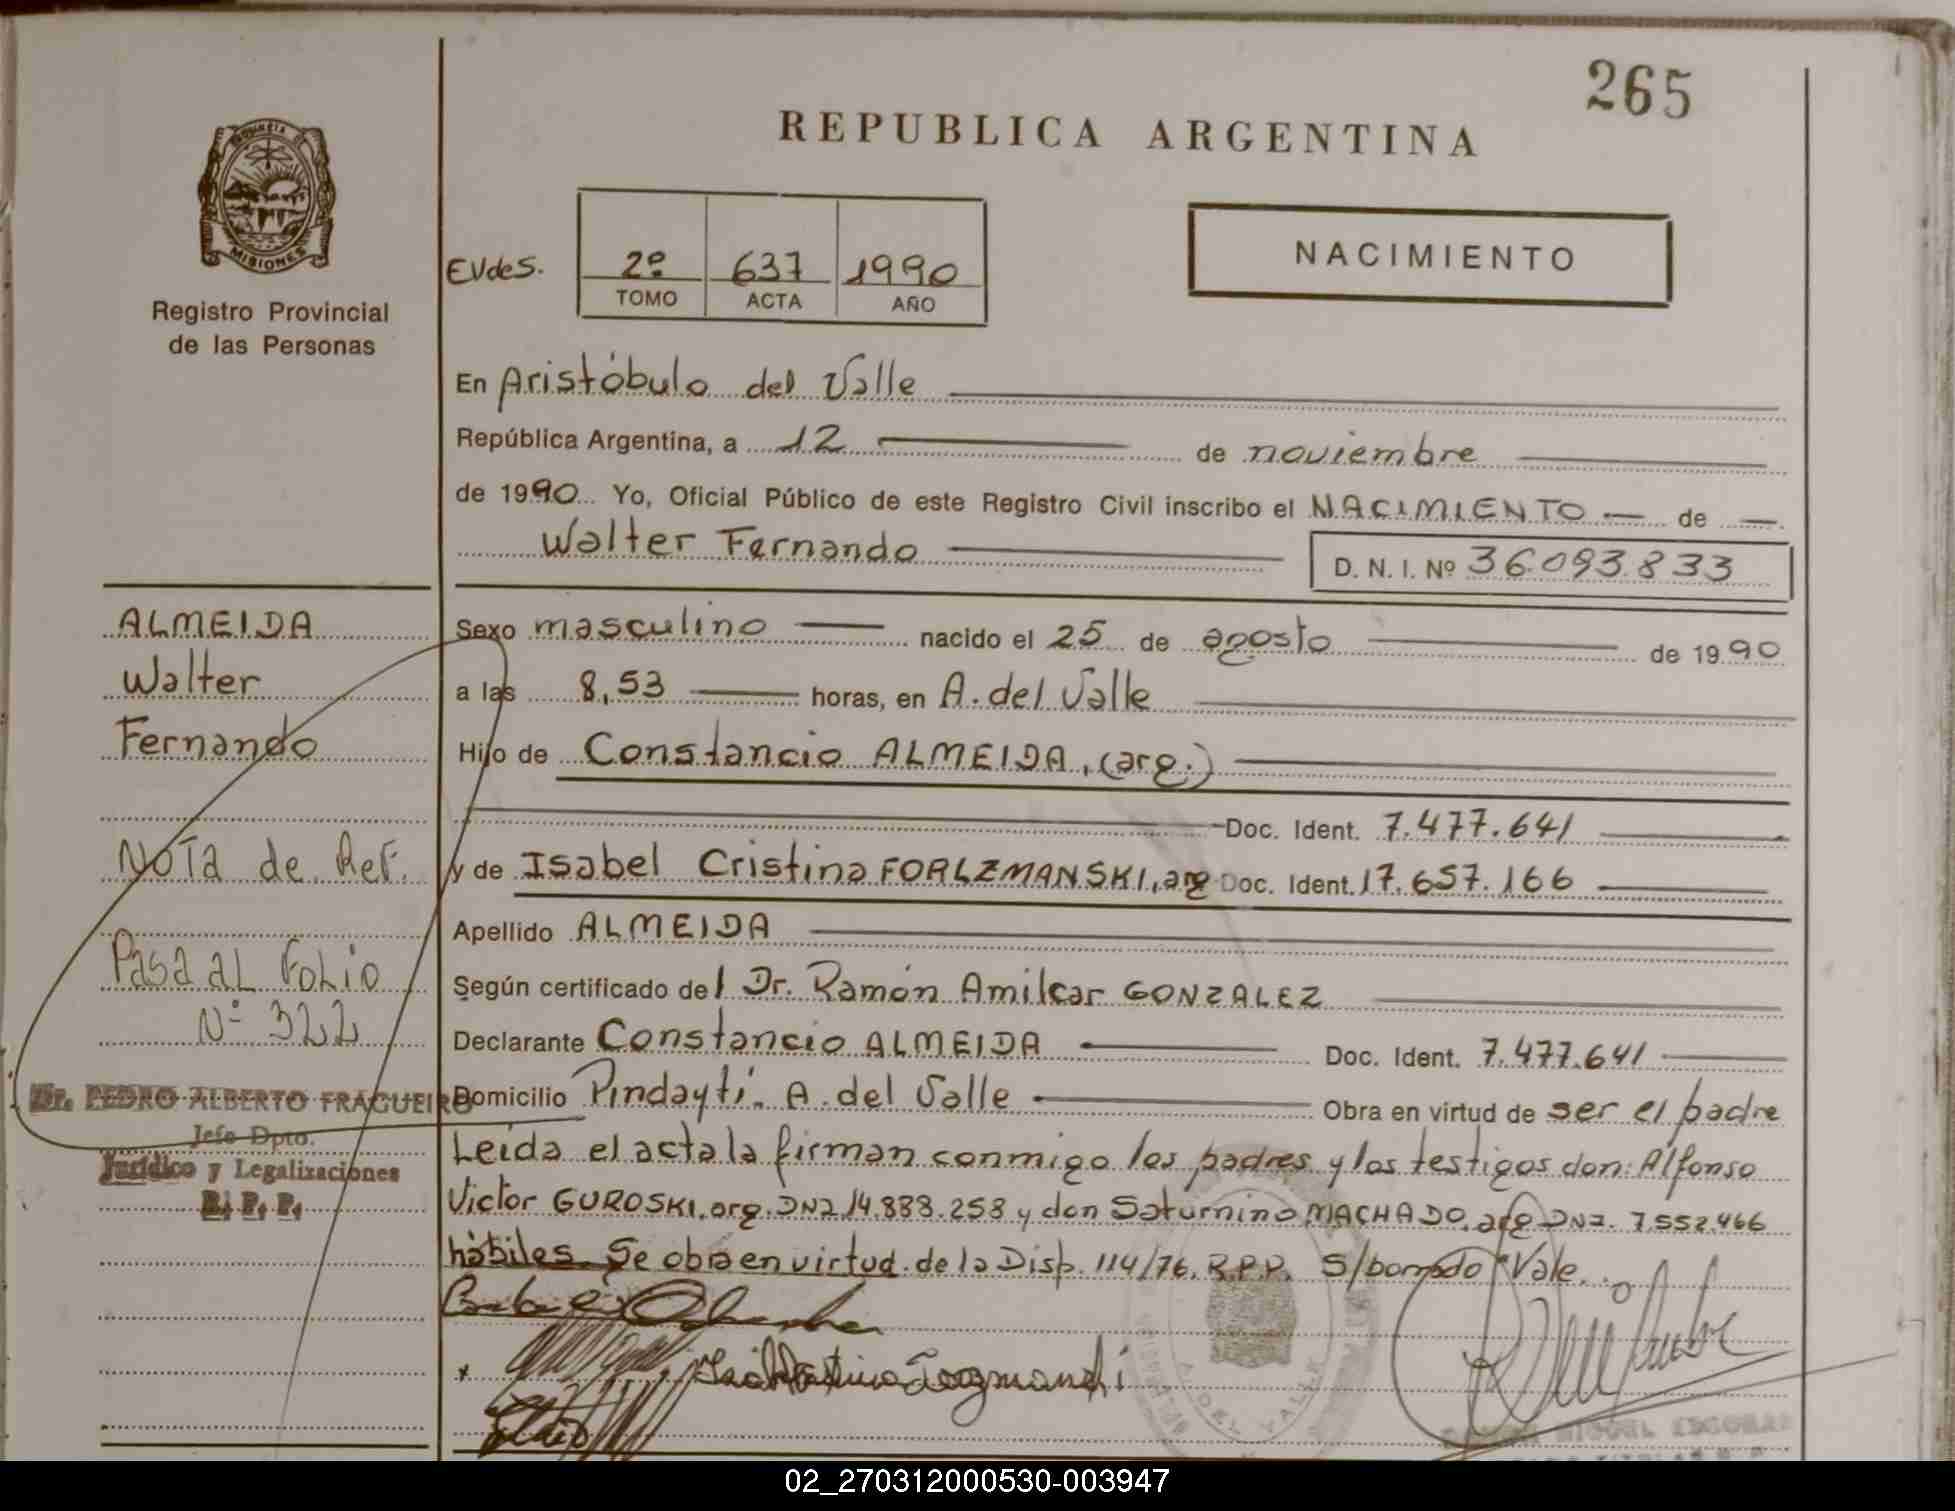 265
REPUBLICA ARGENTINA
MISIONES
Registro Provincial
de las Personas
EVdeS.
2º 637 1990
TOMO ACTA AÑO
NACIMIENTO
En Aristóbulo del Valle
República Argentina, a 12 de noviembre
de 1990 Yo, Oficial Público de este Registro Civil inscribo el NACIMIENTO — de —
Walter Fernando D. N. I. Nº 36.093.833
ALMEIDA
Walter
Fernando
Nota de Ref.
Pasa al Folio
Nº 322
Dr. PEDRO ALBERTO FRAGUEIRO
Jefe Dpto.
Jurídico y Legalizaciones
R. P. P.
Sexo masculino nacido el 25 de agosto de 1990
a las 8,53 horas, en A. del Valle
Hijo de Constancio ALMEIDA, (arg.)
Doc. Ident. 7.477.641
y de Isabel Cristina FORLZMANSKI, arg Doc. Ident. 17.657.166
Apellido ALMEIDA
Según certificado del Dr. Ramón Amilcar GONZALEZ
Declarante Constancio ALMEIDA Doc. Ident. 7.477.641
Domicilio Pindaytí. A. del Valle Obra en virtud de ser el padre
Leída el acta la firman conmigo los padres y los testigos don: Alfonso
Victor GUROSKI, arg. DNI 14.888.258 y don Saturnino MACHADO, arg DNI. 7.552.466
hábiles. Se obra en virtud de la Disp. 114/76. R.P.P. S/borrado "Vale.
A. DEL VALLE
MIGUEL
02_270312000530-003947